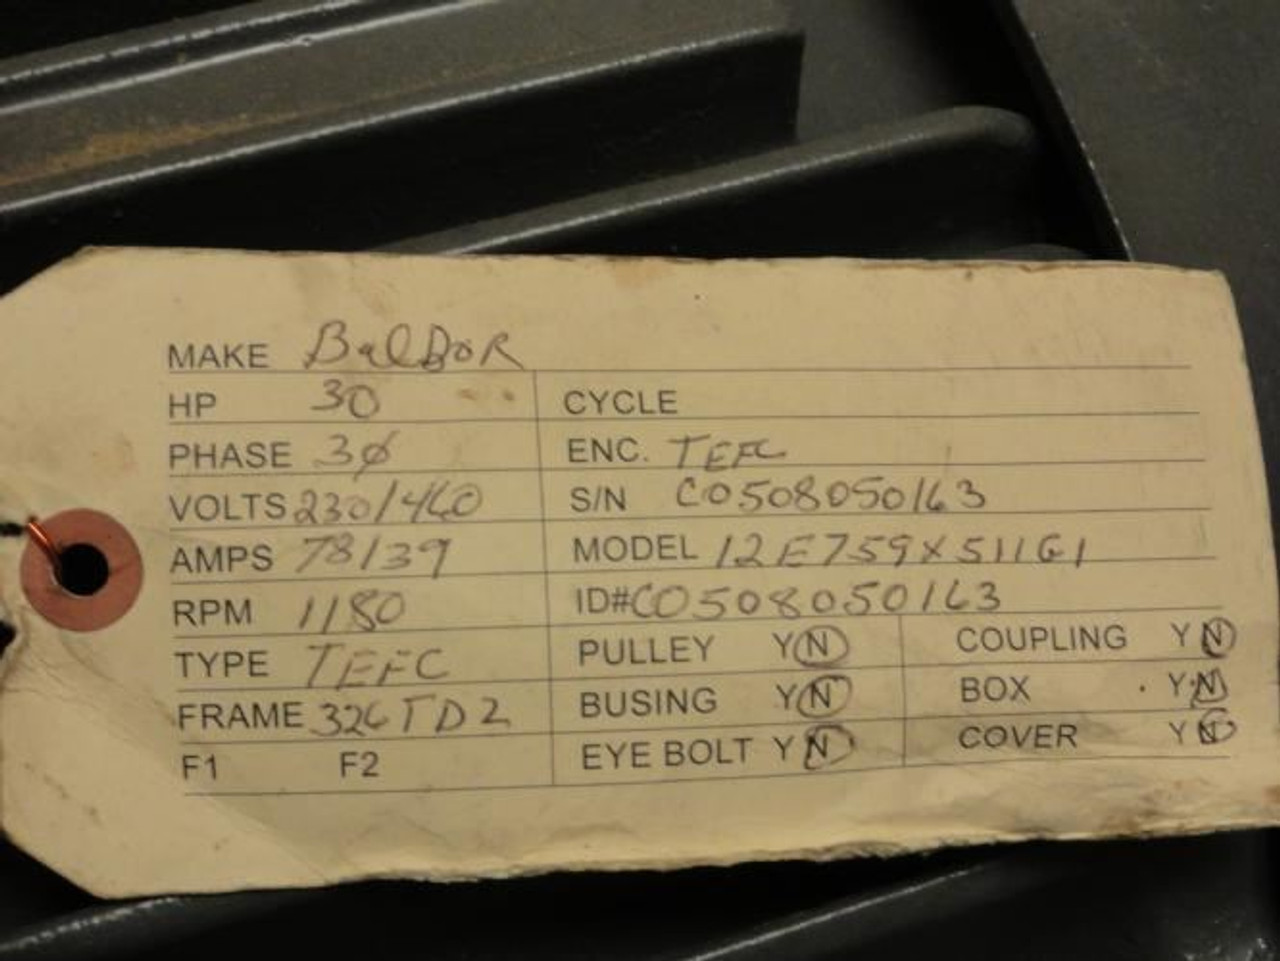 MAKE BalDoR
HP 30 CYCLE
PHASE 3ø ENC. TEFC
VOLTS 230/460 S/N C0508050163
AMPS 78/39 MODEL 12E759X511G1
RPM 1180 ID# C0508050163
TYPE TEFC PULLEY Y N COUPLING Y N
FRAME 326TD2 BUSING Y N BOX Y N
F1 F2 EYE BOLT Y N COVER Y N